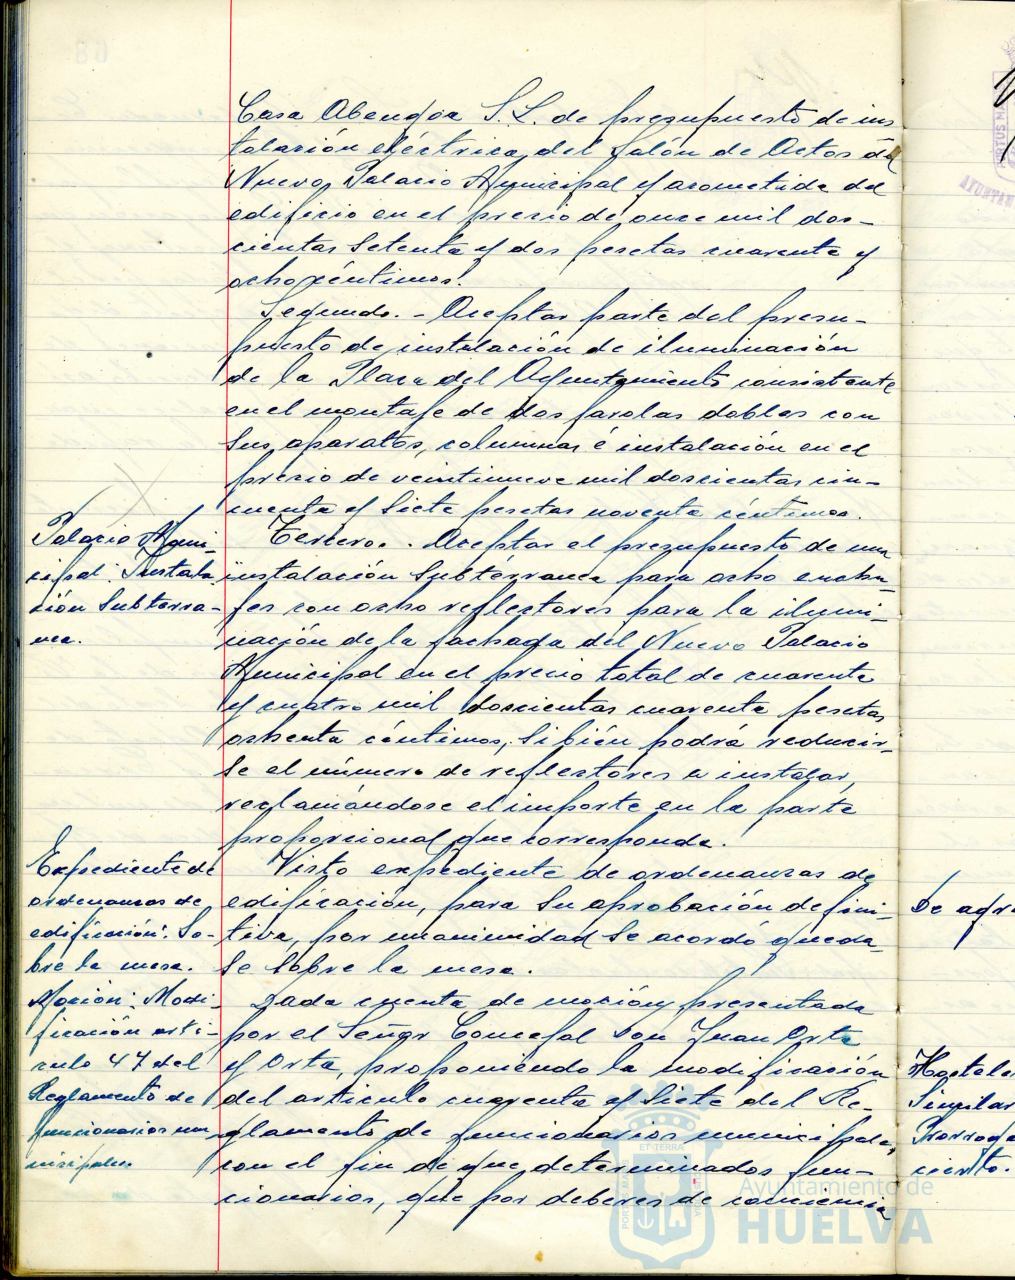 Casa Abengoa S.L. de presupuesto de ins
talación eléctrica del Salón de Actos del
Nuevo Palacio Municipal y acometida del
edificio en el precio de once mil dos-
cientas setenta y dos pesetas cuarenta y
ocho céntimos.
Segundo.- Aceptar parte del presu-
puesto de instalación de iluminación
de la Plaza del Ayuntamiento consistente
en el montaje de dos farolas dobles con
sus aparatos, columnas é instalación en el
precio de veintinueve mil doscientas cin-
cuenta y siete pesetas noventa céntimos.
Palacio Muni-
cipal: Instala
ción Subterra-
nea.
Tercero.- Aceptar el presupuesto de una
instalación Subterranea para ocho enchu
fes con ocho reflectores para la ilumi-
nación de la fachada del Nuevo Palacio
Municipal en el precio total de cuarenta
y cuatro mil doscientas cuarenta pesetas
ochenta céntimos, si bién podrá reducir-
se el número de reflectores a instalar,
reclamándose el importe en la parte
proporcional que corresponda.
Expediente de
ordenanzas de
edificación: So-
bre la mesa.
Visto expediente de ordenanzas de
edificación, para su aprobación defini-
tiva, por unanimidad se acordó queda-
se sobre la mesa.
Moción: Modi-
ficación arti-
culo 47 del
Reglamento de
funcionarios mu
nicipales.
Dada cuenta de moción presentada
por el Señor Concejal Don Juan Orta
y Orta, proponiendo la modificación
del articulo cuarenta y siete del Re-
glamento de funcionarios municipales,
con el fin de que determinados fun-
cionarios, que por deberes de conciencia
Ayuntamiento de
HUELVA
PORTUS MARIS
ET TERRÆ
Se
Singular